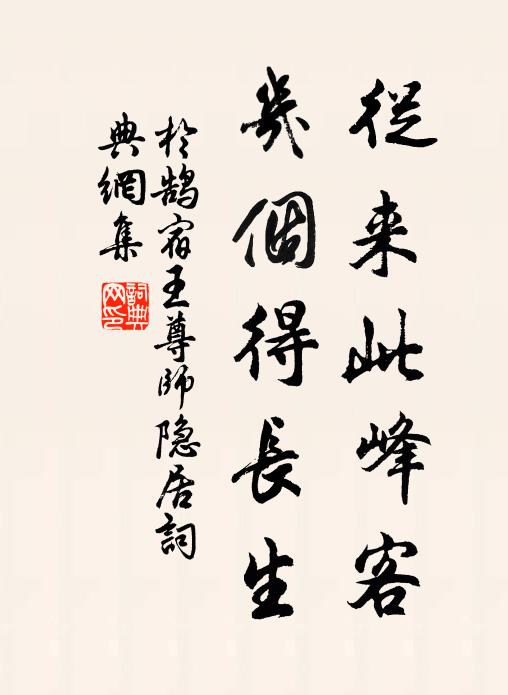 從来此峰客
幾個得長生
於鵠宿王尊師隐居詞
典網集
詞典
网印